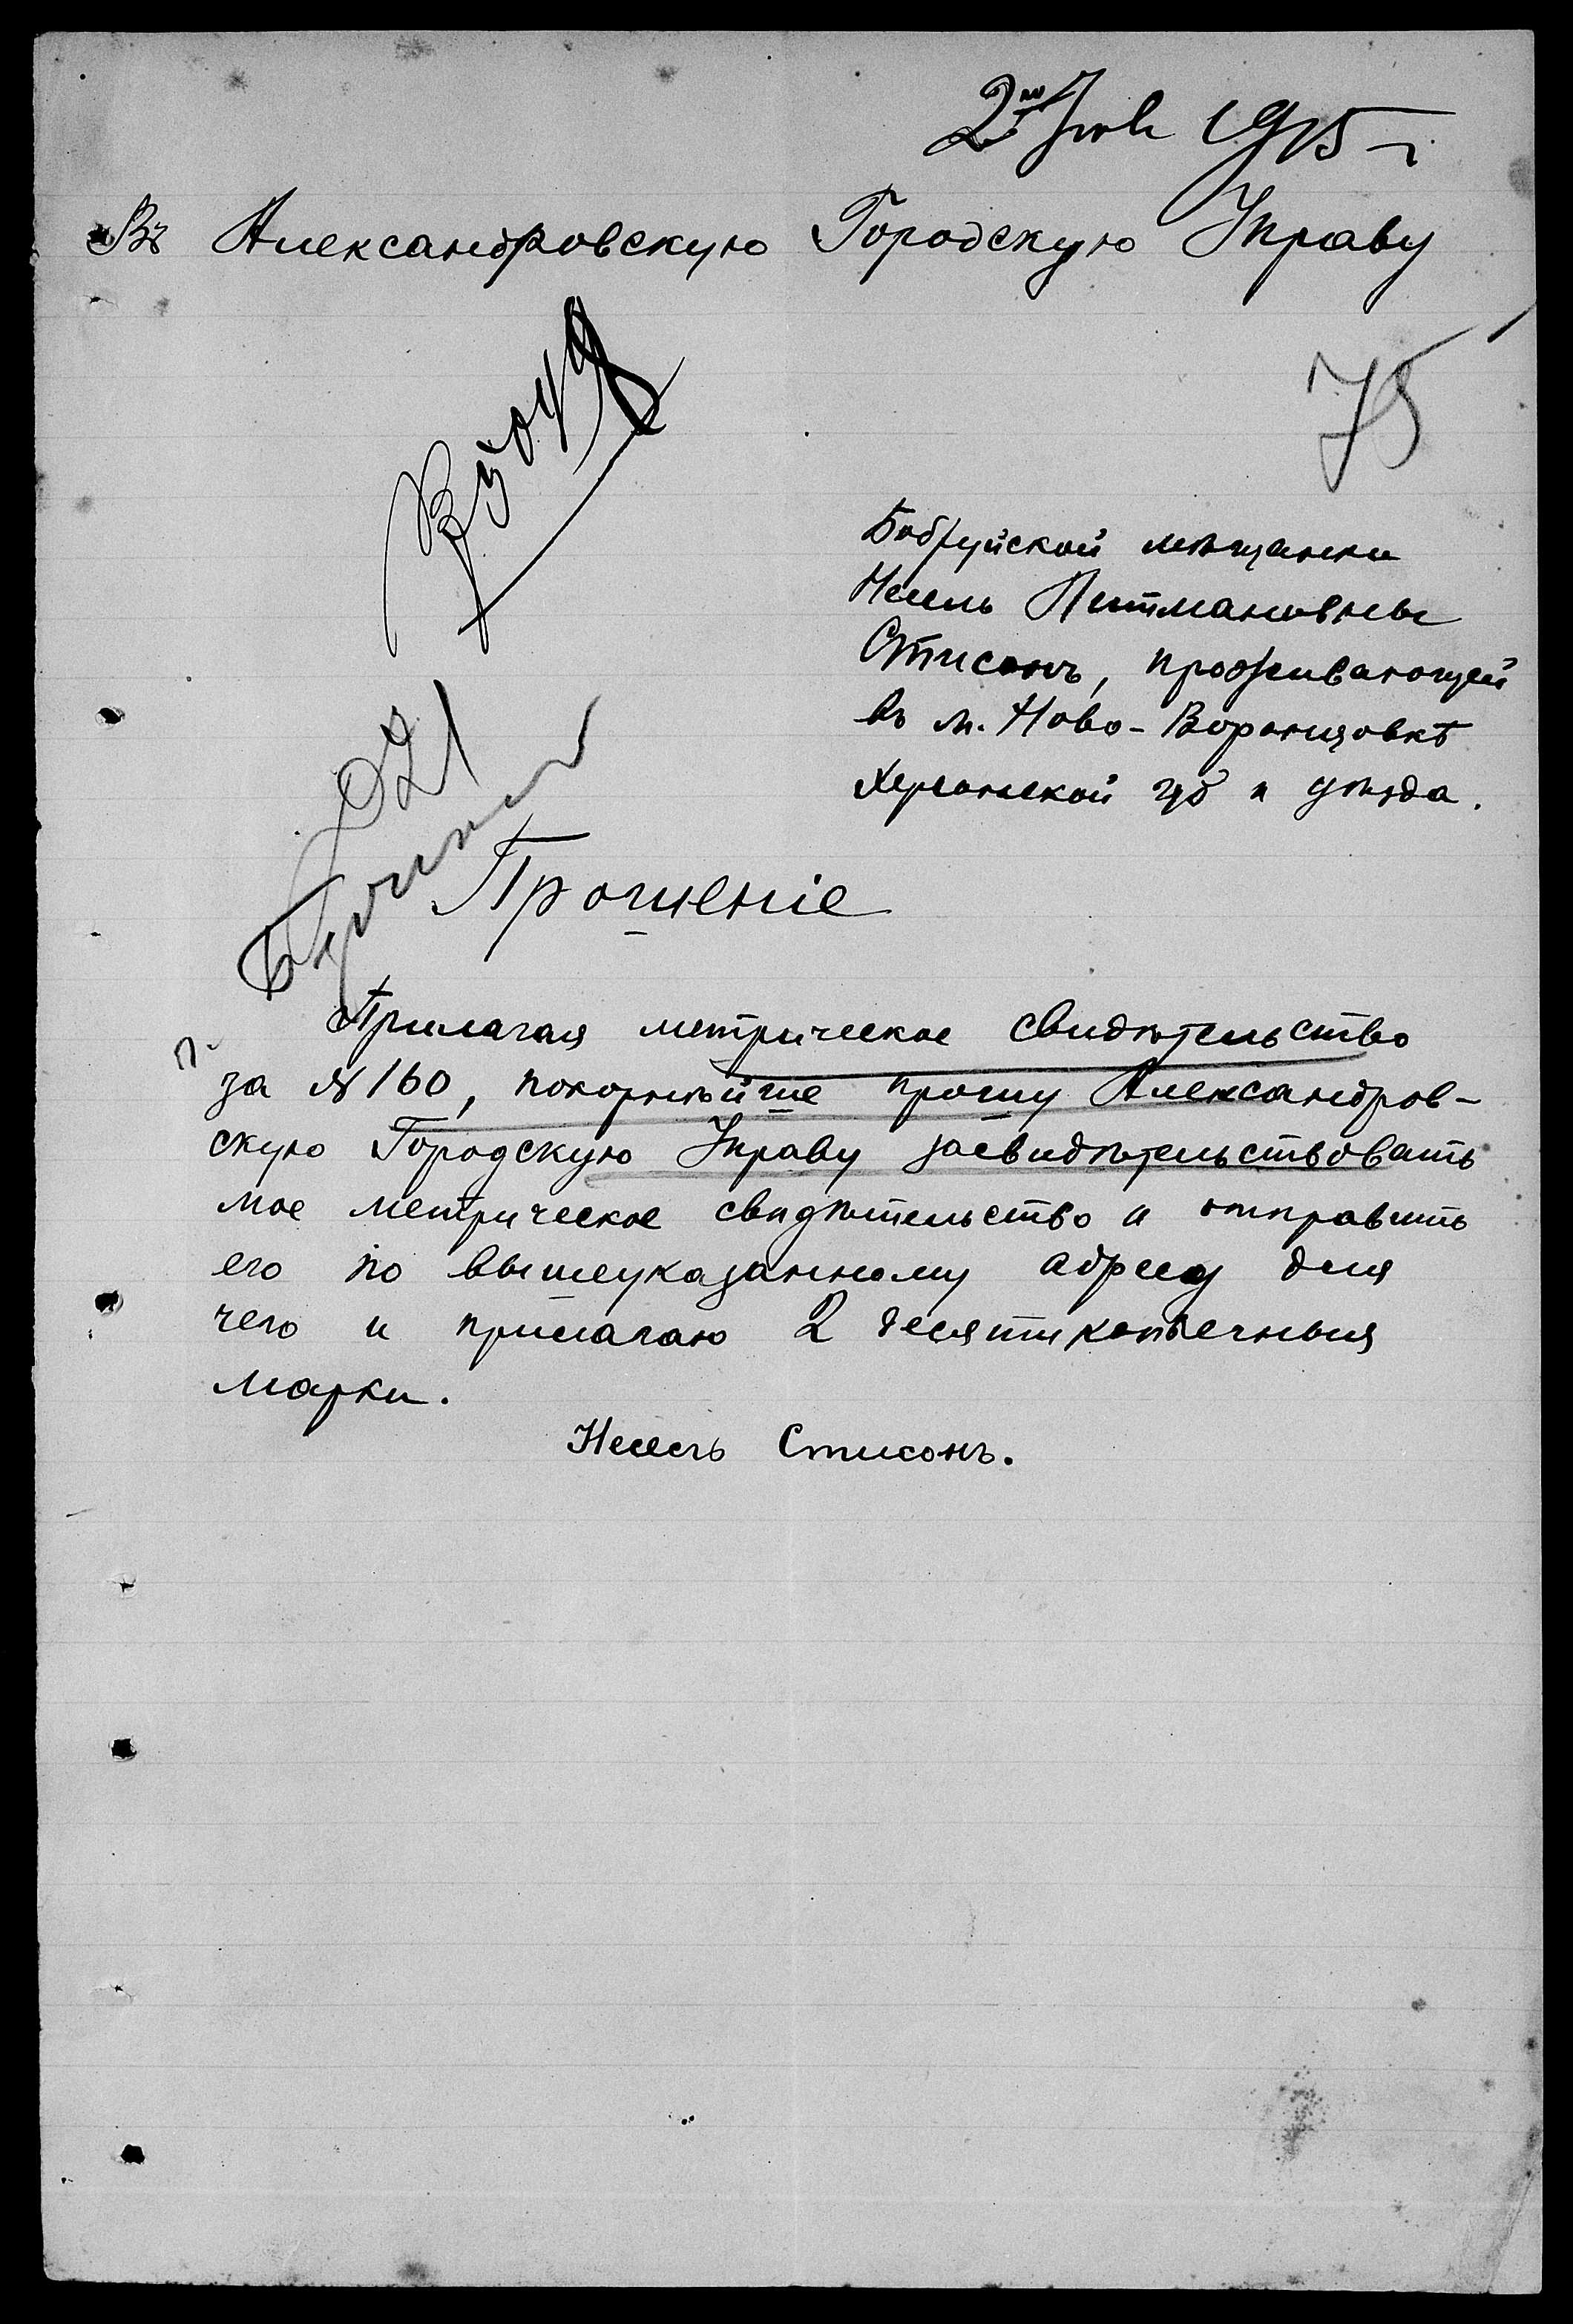 2го 1915 г.
Въ Александровскую Городскую Управу
75
Бобруйской мѣщанки
Стисонъ, проживающей
въ м. Ново-Воронцовкѣ
Херсонской губ и уѣзда.
Прошеніе
Прилагая метрическое свидѣтельство
за № 160, покорнѣйше прошу Александров-
скую Городскую Управу засвидѣтельствовать
мое метрическое свидѣтельство и отправить
его по вышеуказанному адресу для
чего и прилагаю 2 десятикопѣечныя
марки.
Стисонъ.